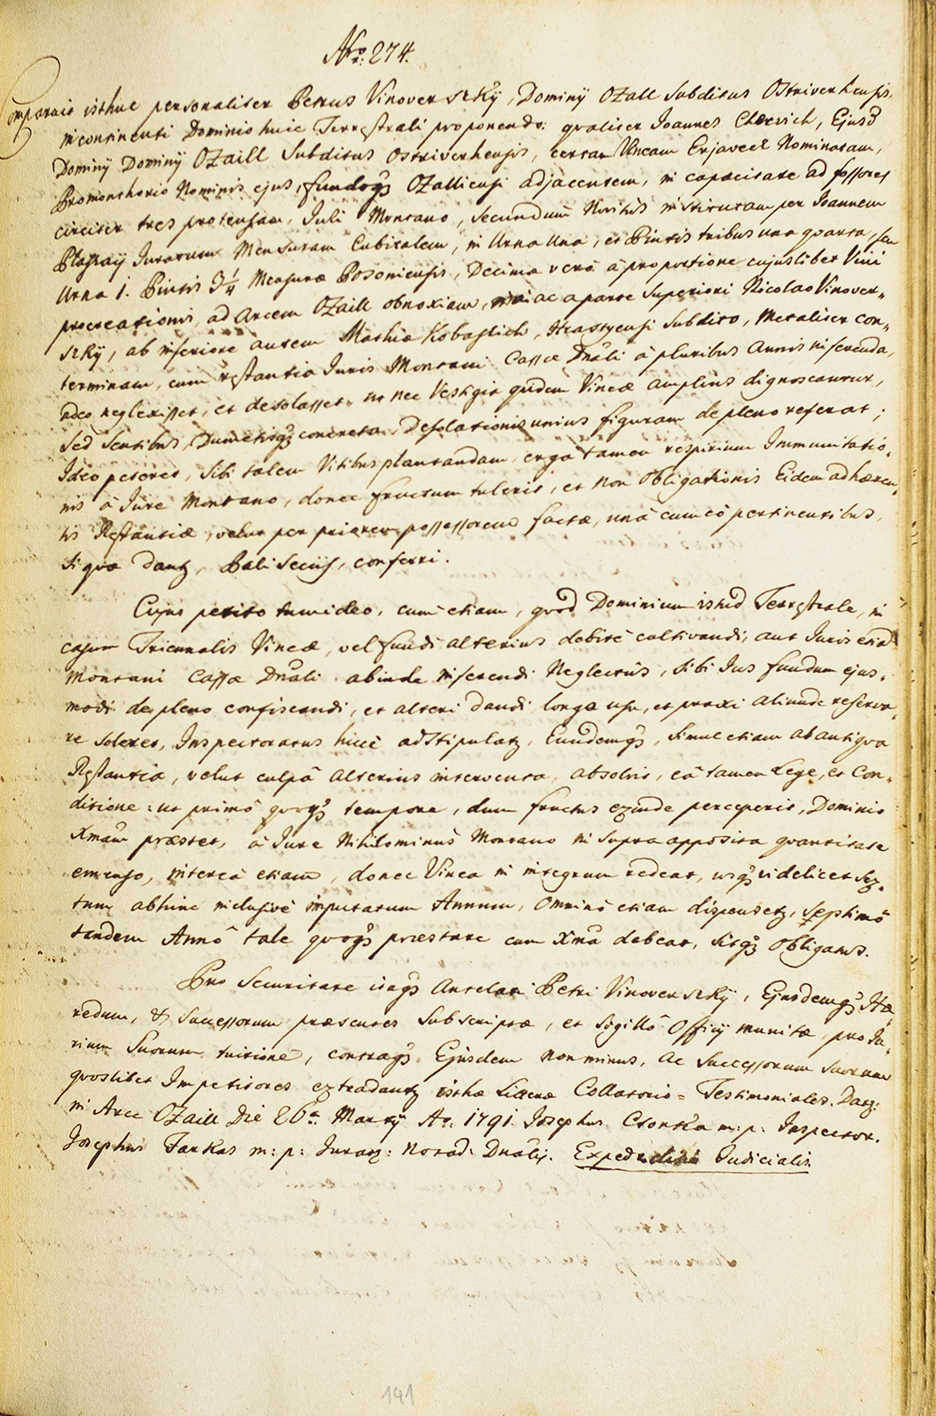 Nro: 274.
Comparuio isthuc personaliter Petrus Vinoverszky, Dominy Ozall Subditus Ostriverhensis,
in continenti Dominio huic Terrestrali proponendo: qualiter Joannes Ejusd
Dominy Dominy Ozaill Subditus Ostriverhensis, certam Vineam Erjavecz Nominatam,
Promonthorio Nominis ejus, fundoqs Ozalliensi adjacentem, in capacitate ad fossores
circiter tres protensam, Juli Montano, Secundum Novitus institutam per Joannem
Juratum Mensuram Cubitalem, in Urna Una, et Pintis tribus una quarta, seu
Urna 1. Pintis 3¼ Mensuræ Posoniensis, Decimæ verò à proportione cujuslibet Vini
procreationis, ad Arcem Ozaill obnoxiam, ac a parte Superiori Nicolao Vinover=
szky, ab inferiore autem Mathia Kobasslich, Subdito, Metaliter con=
terminam, cum restantia Juris Montani Cassæ Dnali à pluribus annis inferenda,
adeo neglexisset, et desolasset, ut nec Vestigia quidem Vineæ amplius dignoscantur,
sed Sentibus, Dumetisqs concreta Desolationis unius figuram de pleno referat;
Ideo peteret, Sibi talem Vitibus plantandam, erga tamen respirium Immunitatio=
nis à Jure Montano, donec fructum tulerit, et non Obligationis Eidem adhæren=
tis Restantiæ, velut per priorem possessorem factæ, unà cum eò pertinentibus,
si qua dantr, conferri.
Cujus petito tum ideo, cum etiam, quod Dominium istud Terrestrale, in
casum Vineæ, vel fundi alterius debitè cultivandi, aut Juris etiam
Montani Cassæ Dnali abinde inferendi Neglectus, Sibi Jus fundum ejus=
modi de pleno confiscandi, et alteri dandi longa usu, et praxi aliunde reserva=
re soleret, Inspectoratus hicce adstipulatr, Eundemqs, Simul etiam ab antiqua
Restantia, velut culpâ alterius interventa, absolvit, eâ tamen Lege, et Con=
ditione: ut primô quoqs tempore, dum fructus exinde perceperit, Dominio
Xmam præstet, à Jure Nihilominus Montano in Supra apposita quantitate
emenso, intereà etiam, donec Vinea in integrum redeat, usqs videlicet Sex=
tum abhinc inclusivè imputatum Annum, omninò etiam dispensetr, Septimô
tandem Annô tale quoqs præstare cum Xma debeat, Sitqs Obligatus.
Pro Securitate itaqs Antelati Petri Vinoverszky, Ejusdemqs Hæ=
redum, & Successorum præsentes Subscriptæ, et Sigillô Officy munitæ, pro Ju=
rium Suorum tuitione, contraqs Ejusdem non minus, ac Successorum Suorum
quoslibet Impetitores extradantr isthæ Literæ Collatorio = Testimoniales. Datr:
in Arce Ozaill Die 26a: Marty Ao: 1791. Josephus Csonka m: p: Inspector.
Josephus Farkas m: p: Jurats: Notad: Dnalis. Expeditio Judicialis
141